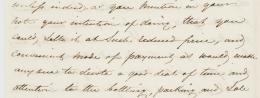 unless indeed, as you mention in your
not your intention of doing, that you
could, sell it at such reduced price, and
convenient mode of payment as would make
any one to devote a good deal of time and
attention to the bottling, packing and sale